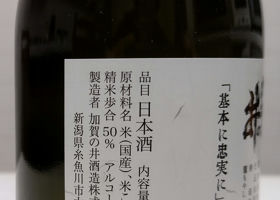 品目 日本酒 内容量
原材料名 米(国産)、米こ
精米歩合 50% アルコー
製造者 加賀の井酒造株式
新潟県糸魚川市大
「基本に忠実に」